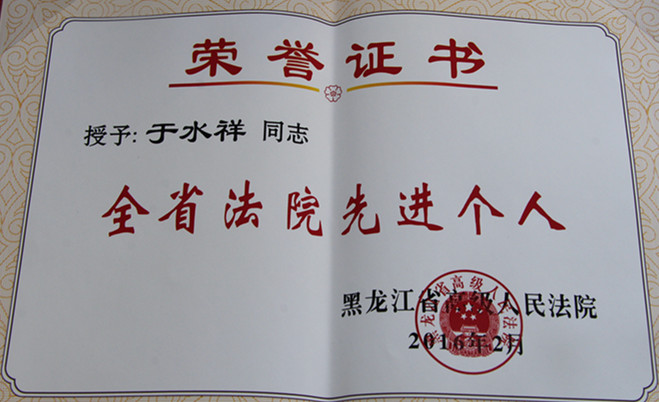 荣誉证书
授予: 于水祥 同志
全省法院先进个人
黑龙江省高级人民法院
2016年2月
黑龙江省高级人民法院